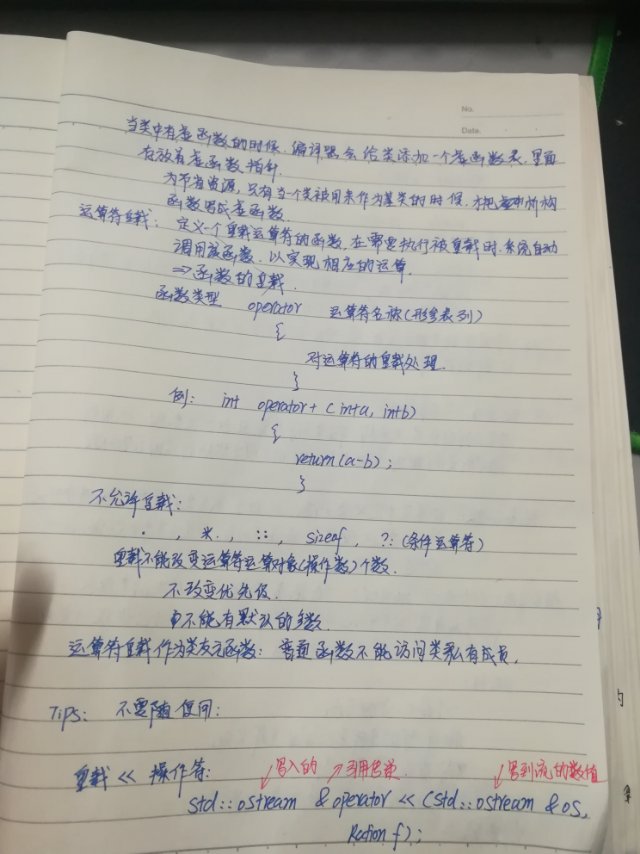 No.
Date.
当类中有虚函数的时候，编译器会给类添加一个虚函数表，里面
存放着虚函数指针
为节省资源，只有当一个类被用来作为基类的时候，才把析构
函数写成虚函数
运算符重载：定义一个重载运算符的函数，在需要执行被重载时，系统自动
调用该函数，以实现相应的运算.
⇒函数的重载.
函数类型 operator 运算符名称(形参表列)
{
对运算符的重载处理.
}
例： int operator+ (int a, int b)
{
return(a-b);
}
不允许重载：
. , .* , :: , sizeof , ?: (条件运算符)
重载不能改变运算符运算对象(操作数)个数.
不改变优先级.
不能有默认的参数.
运算符重载作为类友元函数：普通函数不能访问类私有成员.
Tips: 不要随便用：
重载 << 操作符： ↙写入的 ↗引用传递 ↙写到流的数值
std::ostream &operator << (std::ostream &os,
Ration f);